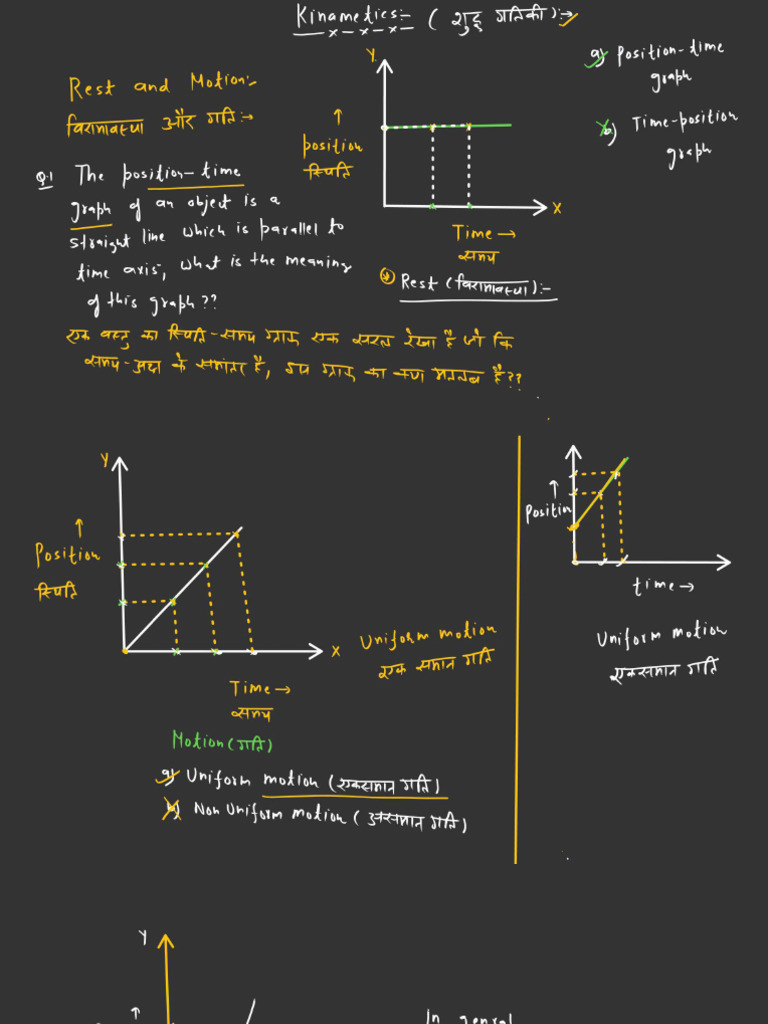 Kinametics:- (शुद्ध गतिकी):→
Rest and Motion:-
विरामावस्था और गति:→
Q.1 The position-time
graph of an object is a
straight line which is parallel to
time axis, what is the meaning
of this graph??
एक वस्तु का स्थिति-समय ग्राफ एक सरल रेखा है जो कि
समय-अक्ष के समांतर है, इस ग्राफ का क्या मतलब है??
Y
↑
position
स्थिति
X
Time →
समय
Rest (विरामावस्था):-
a) Position-time
graph
b) Time-position
graph
Y
↑
Position
स्थिति
X
Time →
समय
Uniform motion
एक समान गति
Motion (गति)
a) Uniform motion (एकसमान गति)
b) Non Uniform motion (असमान गति)
↑
Position
time →
Uniform motion
एकसमान गति
Y
↑
In genral